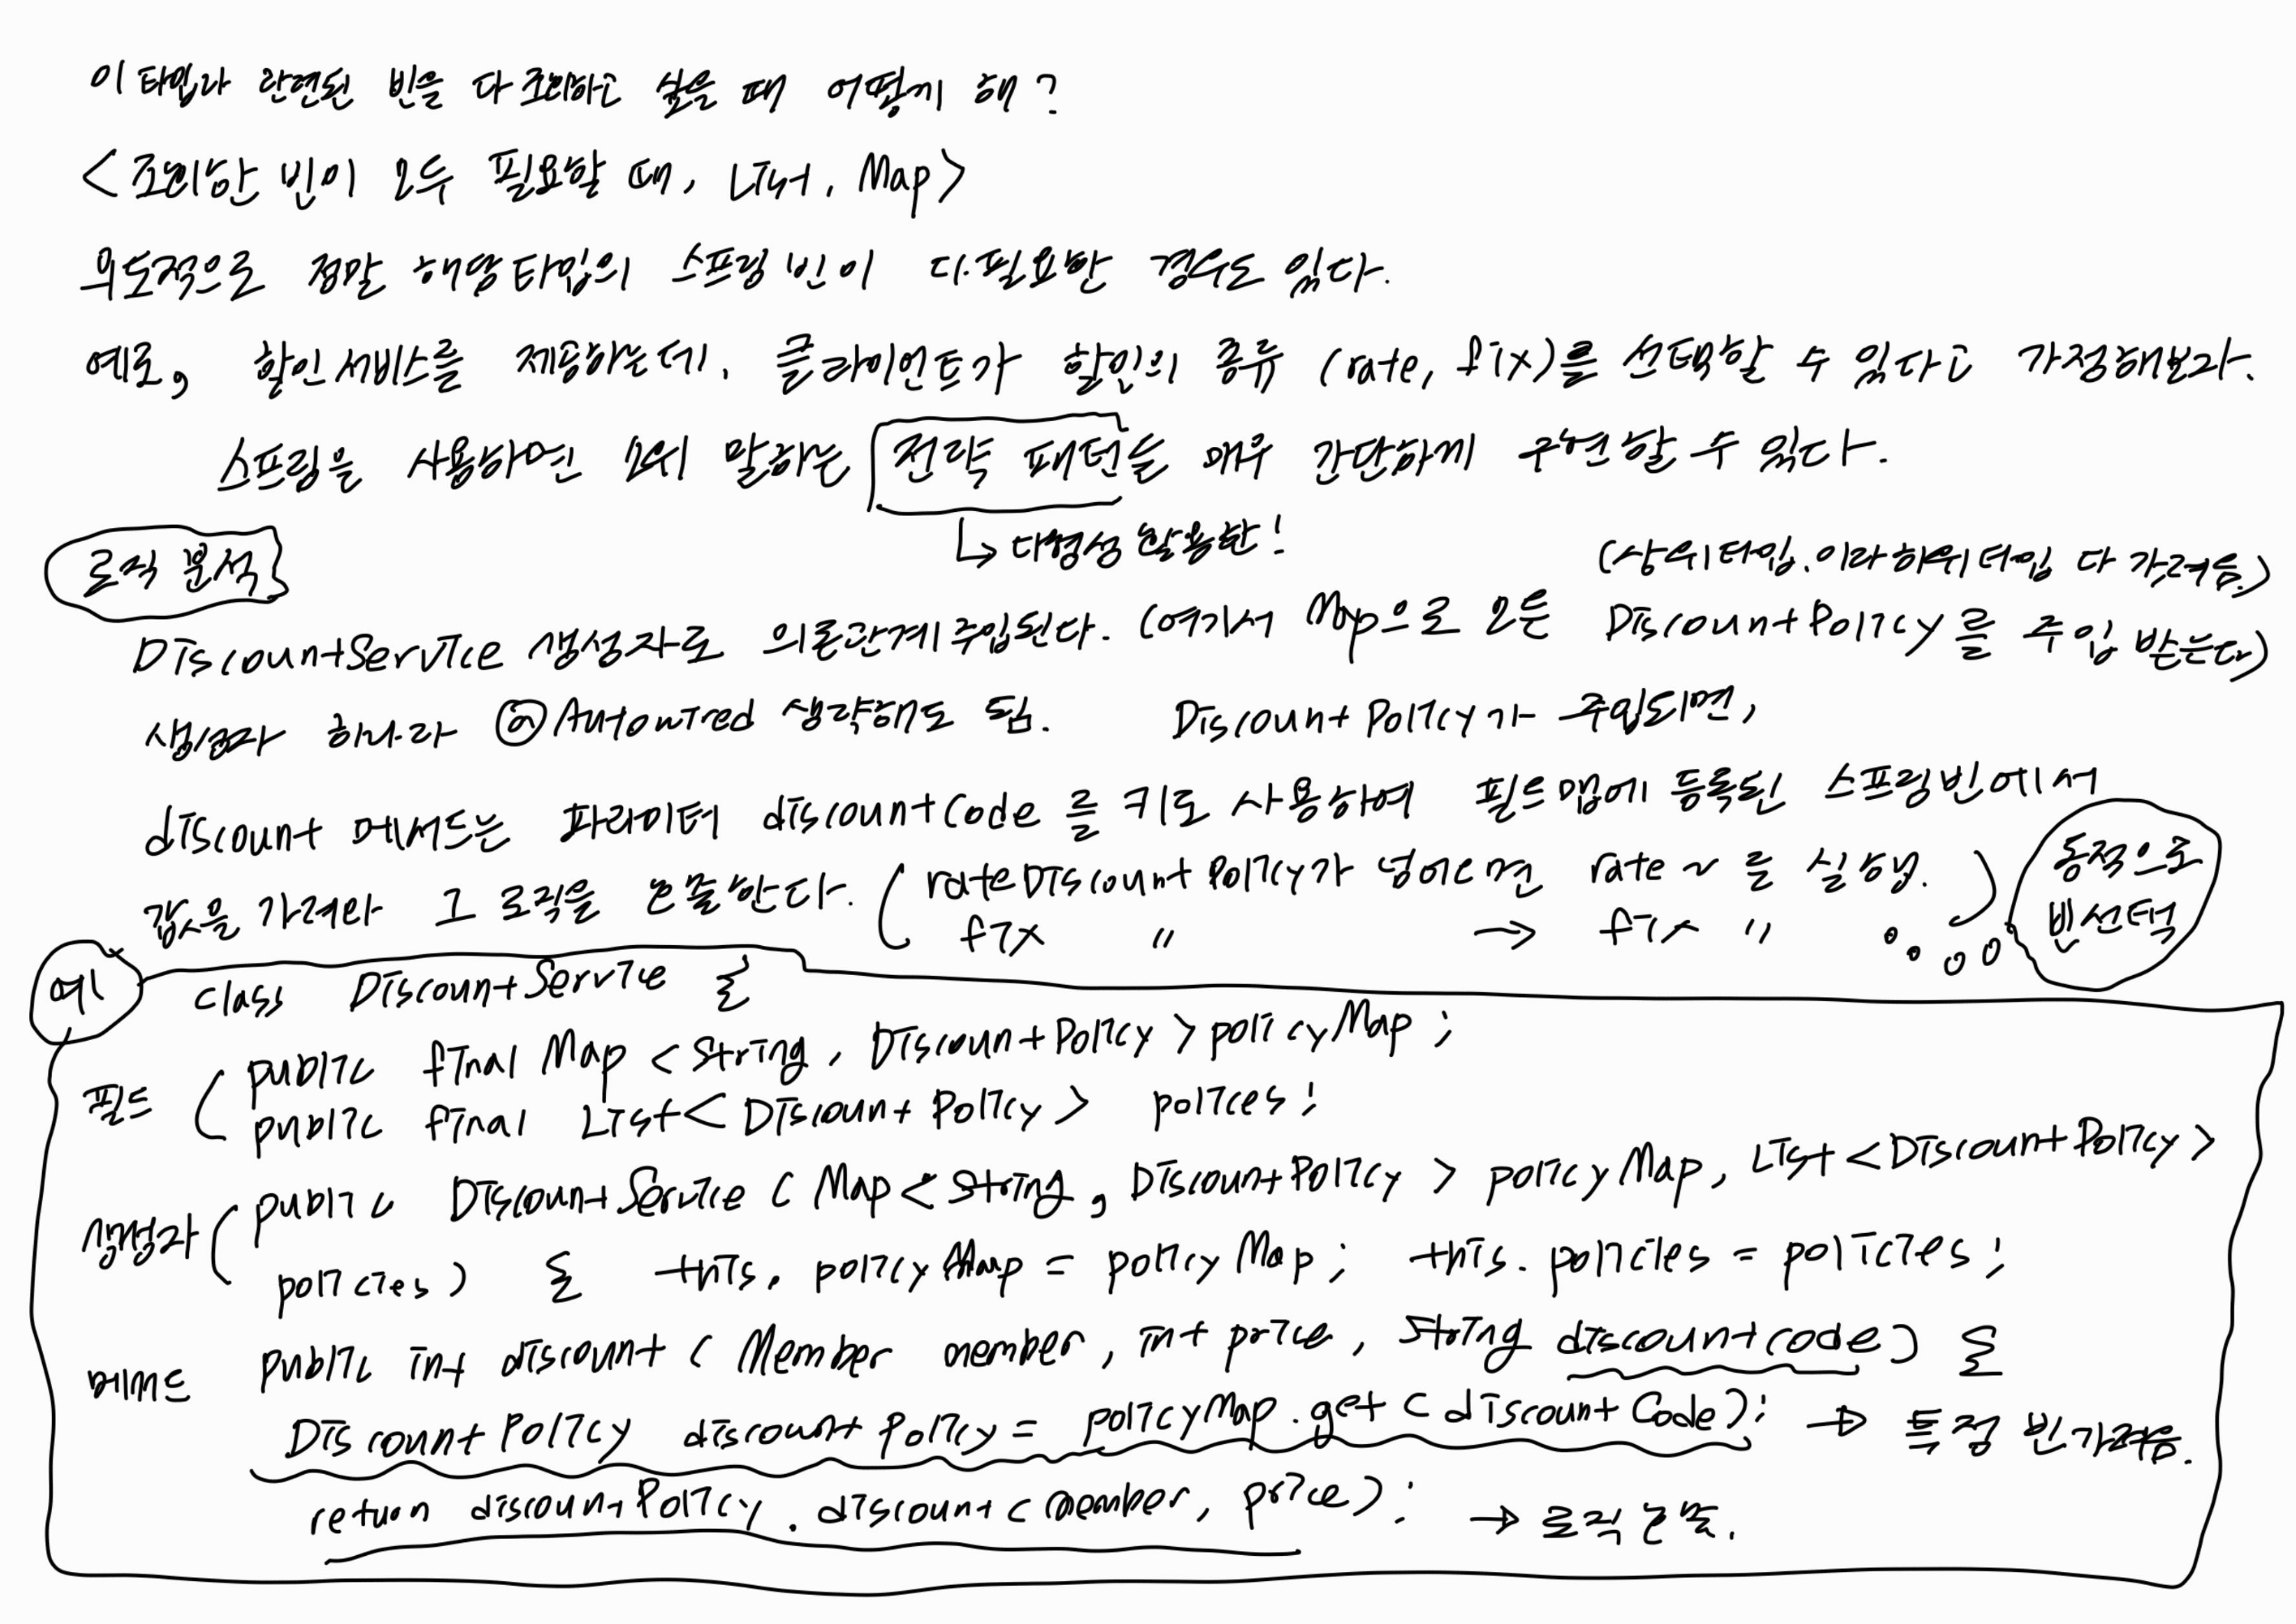 이 타입과 관련된 빈을 다 조회하고 싶을 때 어떻게 해?
<조회한 빈이 모두 필요할 때, List, Map>
의도적으로 정말 해당 타입의 스프링 빈이 다 필요한 경우도 있다.
예로, 할인 서비스를 제공하는데, 클라이언트가 할인의 종류 (rate, fix)를 선택할 수 있다고 가정해보자.
스프링을 사용하면 소위 말하는 전략 패턴을 매우 간단하게 구현할 수 있다.
↳ 다형성 활용한!
로직 분석
(상위타입.이라 하위 타입 다 가져옴.)
DiscountService 생성자로 의존관계 주입된다. (여기서 Map으로 모든 DiscountPolicy를 주입 받는다)
생성자 하나라 @Autowired 생략해도 됨. DiscountPolicy가 주입되면,
discount 메서드는 파라미터 discountCode를 키로 사용하여 필드 맵에 등록된 스프링빈에서
값을 가져와 그 로직을 호출한다. (rateDiscountPolicy가 넘어오면 rate ~ 를 실행.
fix " → fix " )
동적으로
빈 선택
예)
class DiscountService {
필드 ( public final Map <String, DiscountPolicy> policyMap ;
public final List<DiscountPolicy> polices ;
생성자 ( public DiscountService ( Map<String, DiscountPolicy> policyMap, List<DiscountPolicy>
policies ) { this. policyMap = policyMap ; this. policies = policies ;
메서드 public int discount ( Member member, int price, String discountcode) {
DiscountPolicy discountPolicy = policyMap.get (discountCode); → 특정 빈 가져옴.
return discountPolicy. discount (member, price) ; → 로직 호출.